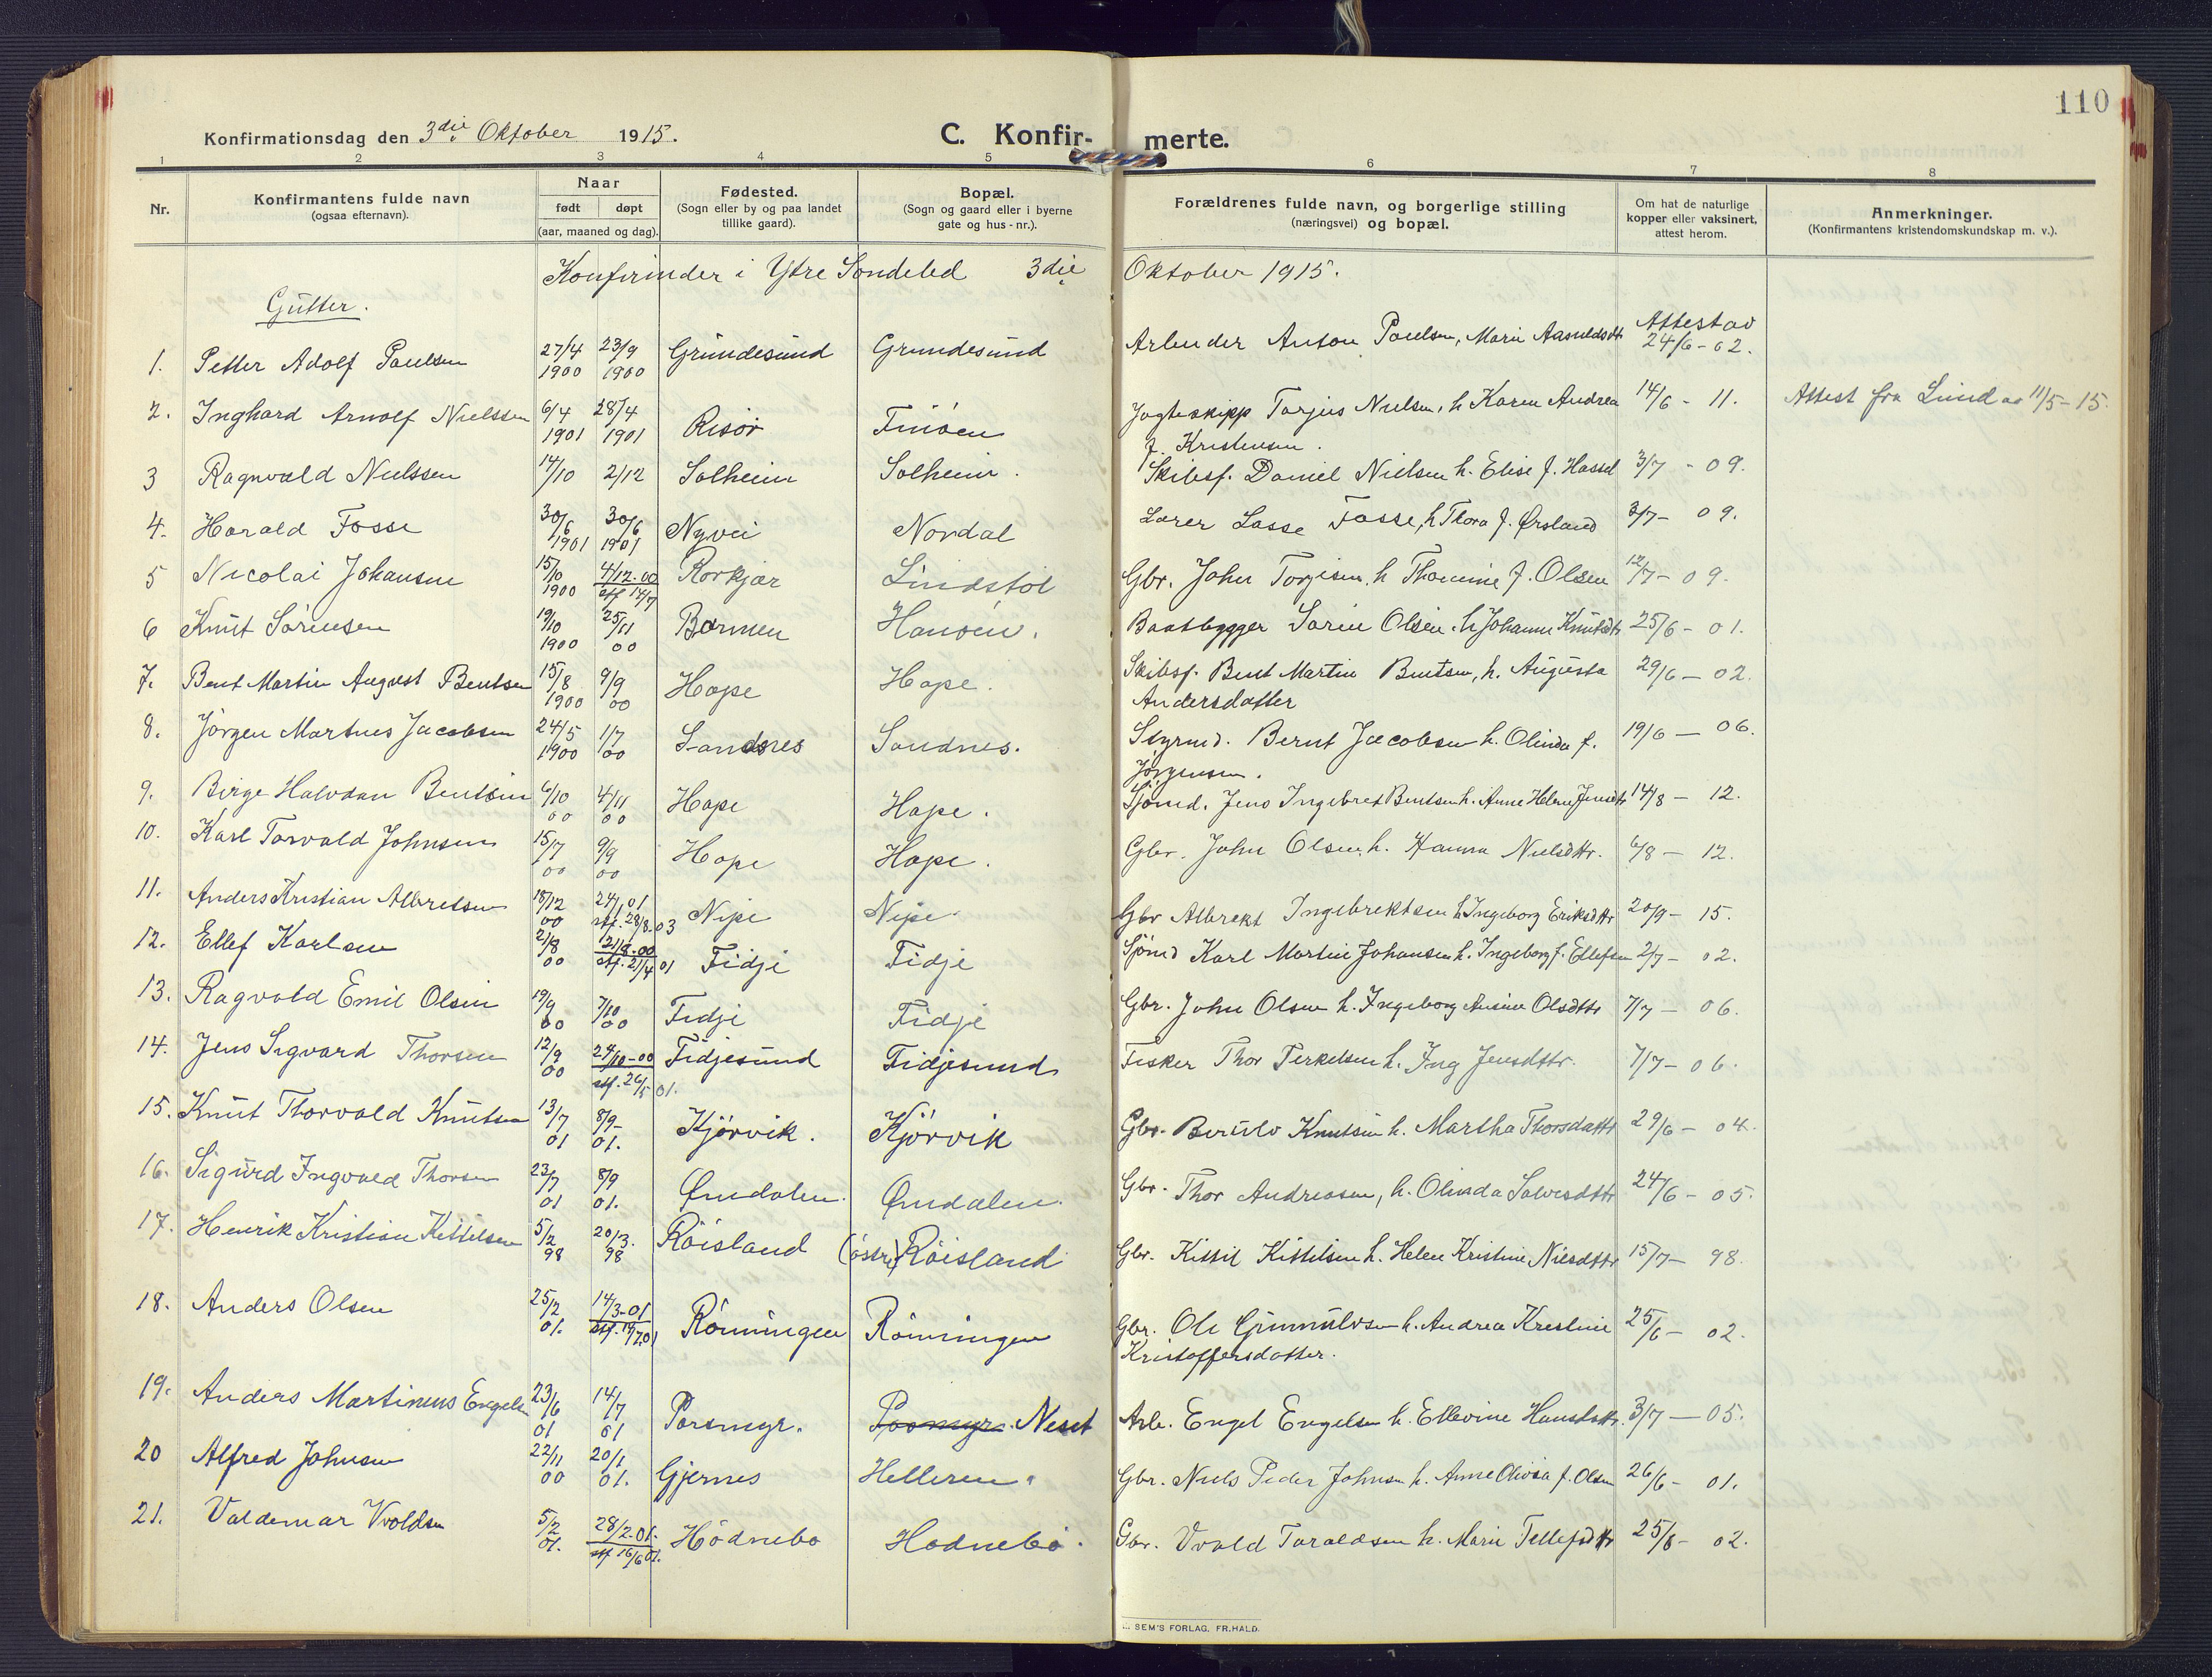 110
Konfirmationsdag den 3die Oktober 1915.
C. Konfir- merte.
1 2 3 4 5 6 7 8
Nr.
Konfirmantens fulde navn
(ogsaa efternavn).
Naar
født døpt
(aar, maaned og dag).
Fødested.
(Sogn eller by og paa landet
tillike gaard).
Bopæl.
(Sogn og gaard eller i byerne
gate og hus-nr.).
Forældrenes fulde navn, og borgerlige stilling
(næringsvei) og bopæl.
Om hat de naturlige
kopper eller vaksinert,
attest herom.
Anmerkninger.
(Konfirmantens kristendomskundskap m. v.).
Konfirmder i Ytre Søndeled 3die Oktober 1915.
Gutter.
1. Petter Adolf Paulsen 27/4 1900 23/9 1900 Grundesund Grundesund Arbeider Anton Paulsen, Marie Attest av 24/6-02.
2. Inghard Arnolf Nielssen 6/4 1901 28/4 1901 Risör Finöen Jagteskipp Tarjus Nielsen, h Karen Andrea 14/6 - 11. Attest fra Lund av 11/5-15.
f. Kristensen.
3 Ragnvald Nielssen 14/10 2/12 Solheim Solheim. Skibsf. Daniel Nielsen h. Elise f. Hassel 3/7 - 09.
4. Harald Fosse 30/6 1901 30/6 1901 Nyvei Nordal Lærer Lasse Fosse, h Thora f. Ørsland 3/7 - 09.
5 Nicolai Johansen 15/10 1900 4/12-00 stf 14/7 Rorkjær Lindstöl Gbr. John Torjesen, h Thomine f. Olsen 12/7 - 09.
6 Knut Sörensen 19/10 1900 25/11 00 Barmen Hansén. Baatbygger Sören Olsen, h Johanne Knutsdtr 25/6 - 01.
7. Bent Martin August Bentsen 15/8 1900 9/9 00 Hope Hope. Skibsf. Bent Martin Bentsen, h. Augusta 29/6 - 02.
Andersdatter
8. Jörgen Martines Jacobsen 24/5 1900 1/7 00 Sandsnes Sandnes. Styrmd. Bernt Jacobsen h. Olinda f. 19/6 - 06.
Jörgensen.
9. Birge Halvdan Bentsen 6/10 00 4/11 00 Hope Hope. Sjömd. Jens Ingebret Bentsen h. Anne Helene Jensdtr 14/8 - 12.
10. Karl Torvald Johnsen 15/7 00 9/9 00 Hope Hope. Gbr. John Olsen, h. Hanna Nielsdttr. 6/8 - 12.
11. Anders Kristian Albretsen 18/12 00 24/1 01 stf. 28/8.03 Nipe Nipe. Gbr Albrekt Ingebrektsen h Ingeborg Eriksdttr 20/9 - 15.
12. Ellef Karlsen 21/8 00 21/8-00 stf. 21/4 01 Fidje Fidje Sjömd Karl Martin Johansen h. Ingeborg f. Ellefsen 2/7 - 02.
13. Ragvald Emil Olsen 19/9 00 7/10 00 Fidje Fidje Gbr. John Olsen h. Ingeborg Olsdttr 7/7 - 06.
14. Jens Sigvard Thorsen 12/9 00 24/10-00 stf. 26/5 01. Fidjesund Fidjesund Fisker Thor Terkelsen h. Ing Jensdttr. 7/7 - 06.
15. Knut Thorvald Knutsen 13/7 01 8/9 01. Kjörvik. Kjörvik Gbr. Knutsen h. Martha Thorsdattr 29/6 - 04.
16. Sigurd Ingvald Thorsen 23/7 01 8/9 01. Ørndalen. Ørndalen. Gbr. Thor Andreasen, h. Olinda Salvesdttr 24/6 - 05.
17. Henrik Kristian Kittilsen 5/2 98 20/3. 98 Röisland (östre) Röisland Gbr. Kittil Kittilsen h. Helene Kristine Nilsdttr 15/7 - 98.
18. Anders Olsen 25/2 01. 14/3-01 stf. 19/7 01 Rönningen Rönningen Gbr. Ole Gunnulvsen h. Andrea Kristine 25/6 - 02.
Kristoffersdatter.
19. Anders Martinus Engelsen 23/6 01 14/7 01 Porsmyr. Posmyr. Neset Arb. Engel Engelsen h. Ellevine Hansdttr. 3/7 - 05.
20 Alfred Johnsen 22/11 00 20/1 01. Gjernes Helleren. Gbr. Niels Peder Johnsen h. Anne Olivia f. Olsen 26/6 - 01.
21. Valdemar Vvoldsen 5/2 01. 28/2.01. stf 16/6 01. Hödnebö Hödnebö. Gbr. Vvold Taraldsen h. Marie Tellefsdttr 25/6 - 02.
SEM'S FORLAG, FR.HALD.